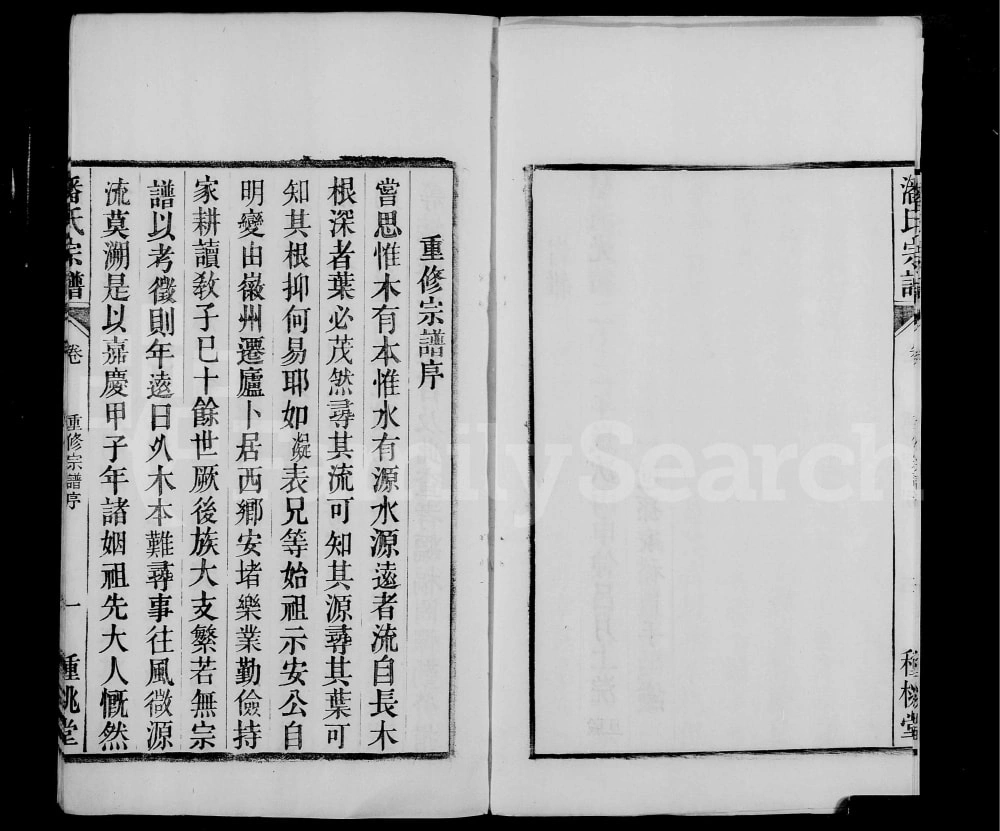 潘氏宗譜
種桃堂
重修宗譜序
嘗思惟木有本惟水有源水源遠者流自長木
根深者葉必茂然尋其流可知其源尋其葉可
知其根抑何易耶如凝表兄等始祖示安公自
明變由徽州遷廬卜居西鄉安堵樂業勤儉持
家耕讀教子已十餘世厥後族大支繁若無宗
譜以考徵則年遠日久木本難尋事往風微源
流莫溯是以嘉慶甲子年諸姻祖先大人慨然
潘氏宗譜
卷
重修宗譜序
一
種桃堂
FamilySearch